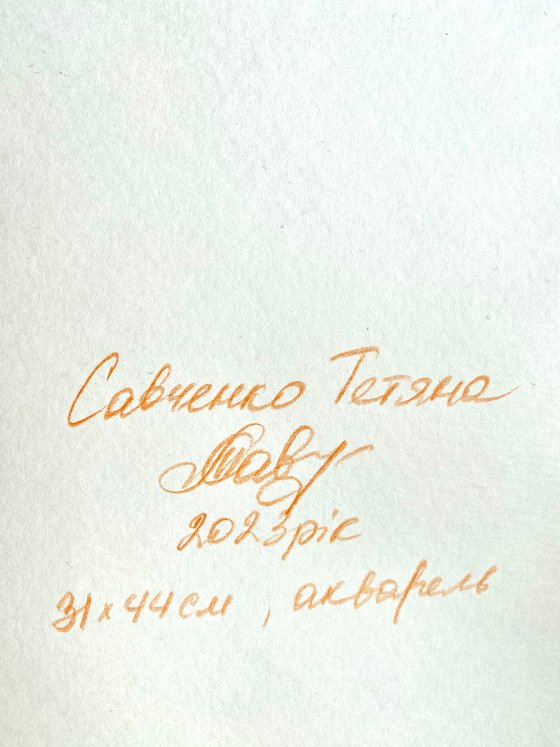 Савченко Тетяна
2023 рік
31 x 44 см , акварель